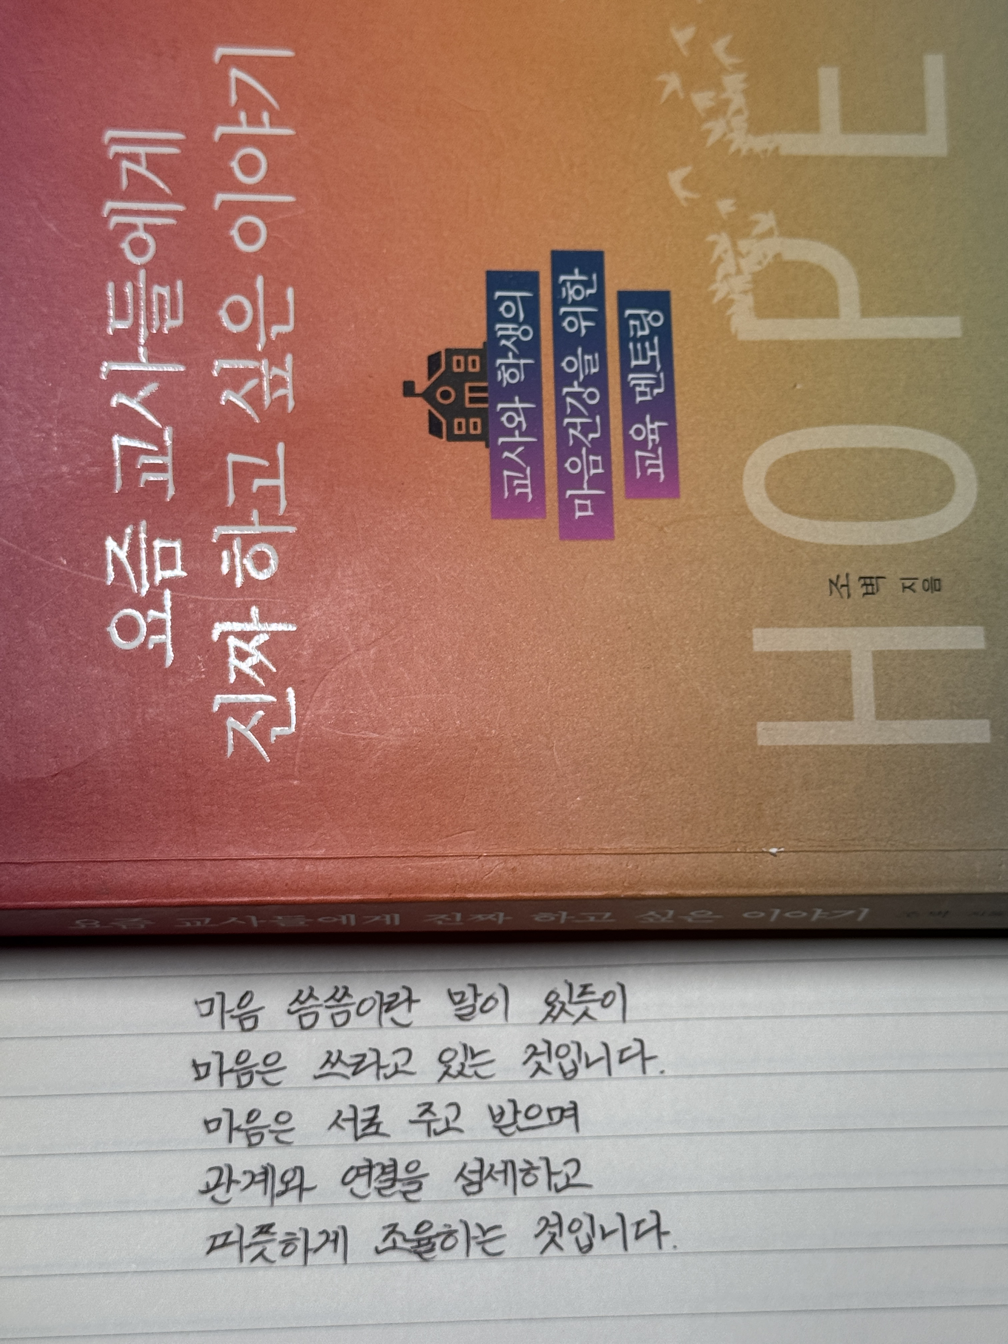 요즘 교사들에게
진짜 하고 싶은 이야기
교사와 학생의
마음건강을 위한
교육 멘토링
HOPE
조벽
지음
요즘 교사들에게 진짜 하고 싶은 이야기 조벽 지음
마음 씀씀이란 말이 있듯이
마음은 쓰라고 있는 것입니다.
마음은 서로 주고 받으며
관계와 연결을 섬세하고
따뜻하게 조율하는 것입니다.